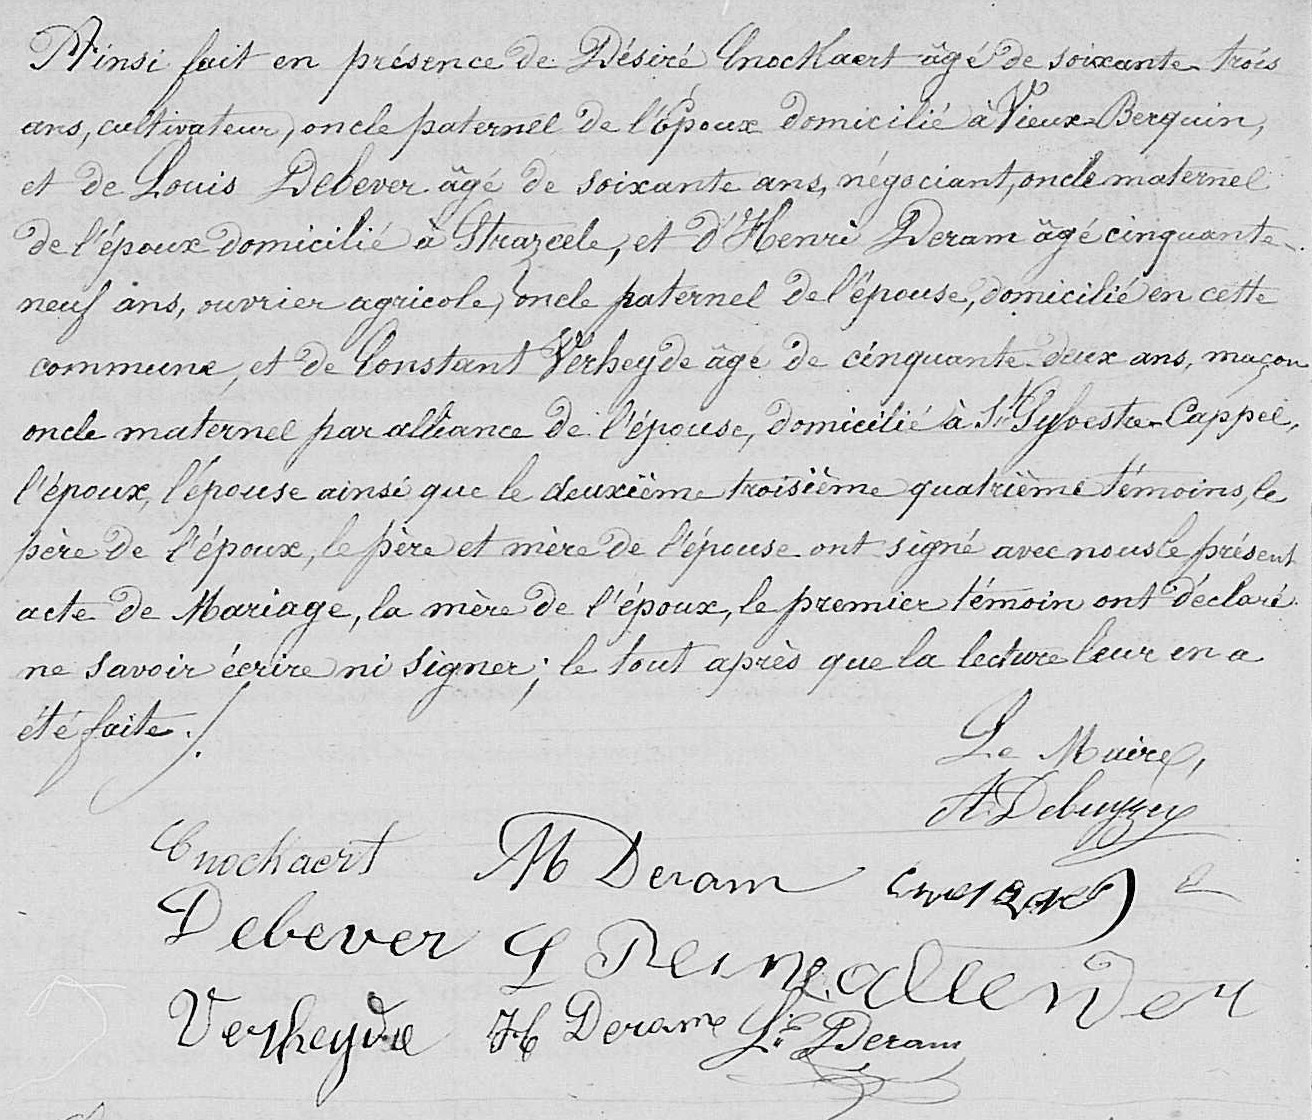 Ainsi fait en présence de Désiré Cnockaert âgé de soixante-trois
ans, cultivateur, oncle paternel de l'Époux domicilié à Vieux-Berquin,
et de Louis Debever âgé de soixante ans, négociant, oncle maternel
de l'époux domicilié à Strazeele, et d'Henri Deram âgé cinquante-
neuf ans, ouvrier agricole, oncle paternel de l'épouse, domicilié en cette
commune, et de Constant Verheyde âgé de cinquante-deux ans, maçon
oncle maternel par alliance de l'épouse, domicilié à St Sylvestre-Cappel,
l'époux, l'épouse ainsi que le deuxième troisième quatrième témoins, le
père de l'époux, le père et mère de l'épouse ont signé avec nous le présent
acte de Mariage, la mère de l'époux, le premier témoin ont déclaré
ne savoir écrire ni signer; le tout après que la lecture leur en a
été faite./.
Le Maire,
A. Debuyzer
Cnockaert M Deram
Debever L
Verheyde H Derame Deram